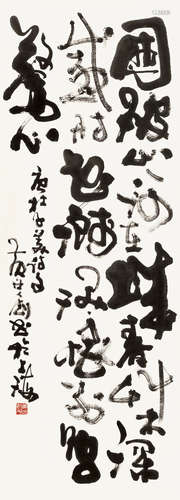 國破山河在城春草木深
感時花濺淚恨別鳥
驚心
唐杜子美詩句
書於上海